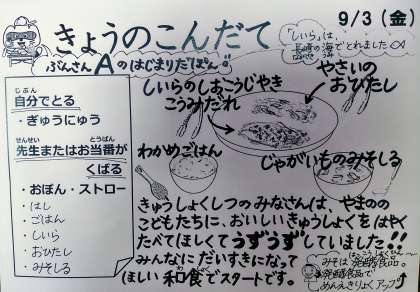 9/3(金)
きょうのこんだて
「しいら」は、
長崎の海でとれました
ながさき うみ
ぶんさんAのはじまりだぽん
じぶん
自分でとる
・ぎゅうにゅう
せんせい とうばん
先生またはお当番が
くばる
・おぼん・ストロー
・はし
・ごはん
・しいら
・おひたし
・みそしる
しいらのしおこうじやき
こうみだれ
やさいの
おひたし
わかめごはん
じゃがいものみそしる
きゅうしょくしつのみなさんは、やまのの
こどもたちに、おいしいきゅうしょくをはやく
たべてほしくてうずうずしていました!!
みんなにだいすきになって
ほしい和食でスタートです。
みそは発酵食品。
発酵食品で
めんえきりょくアップ